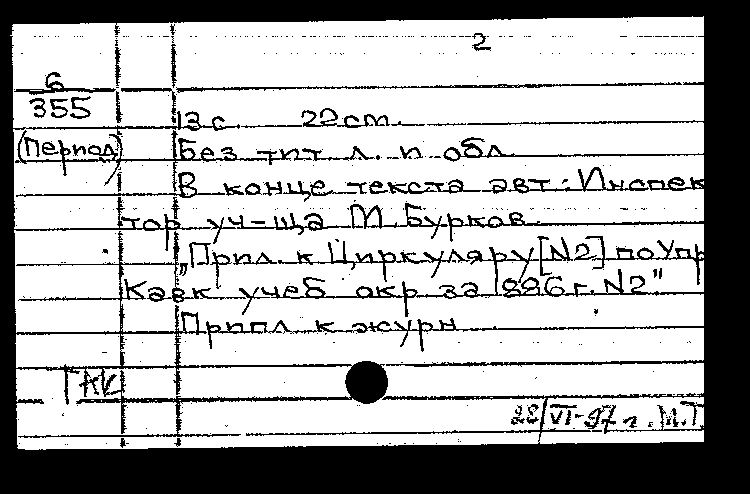 2
6
355
13 с. 22 см.
(Период) Без тит л. и обл.
В конце текста авт: Инспек
тор уч-ща М. Бурков.
„Прил. к Циркуляру [N2] по Упр
Кавк учеб окр за 1886 г. N2"
Припл к журн
ГАК
28/VI-97 г. М.Т.